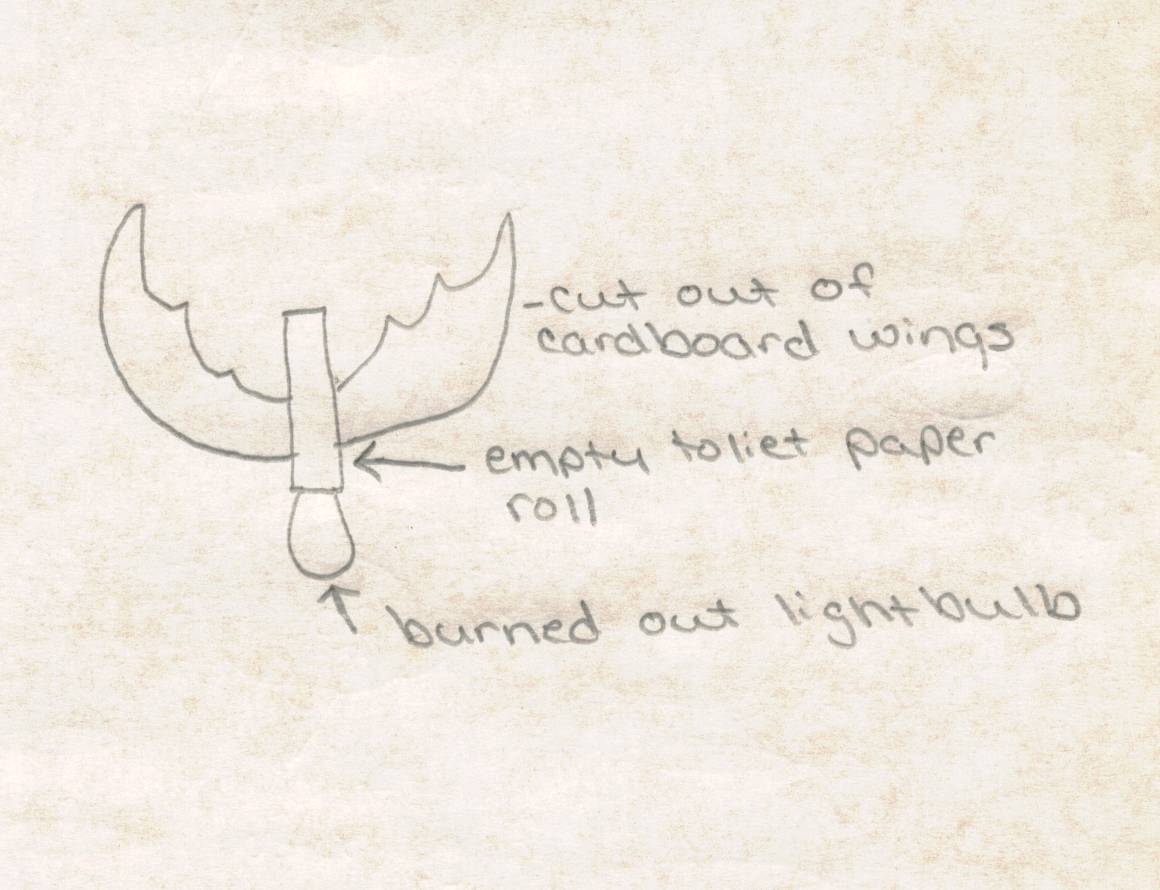 -cut out of
cardboard wings
empty toliet paper
roll
burned out lightbulb